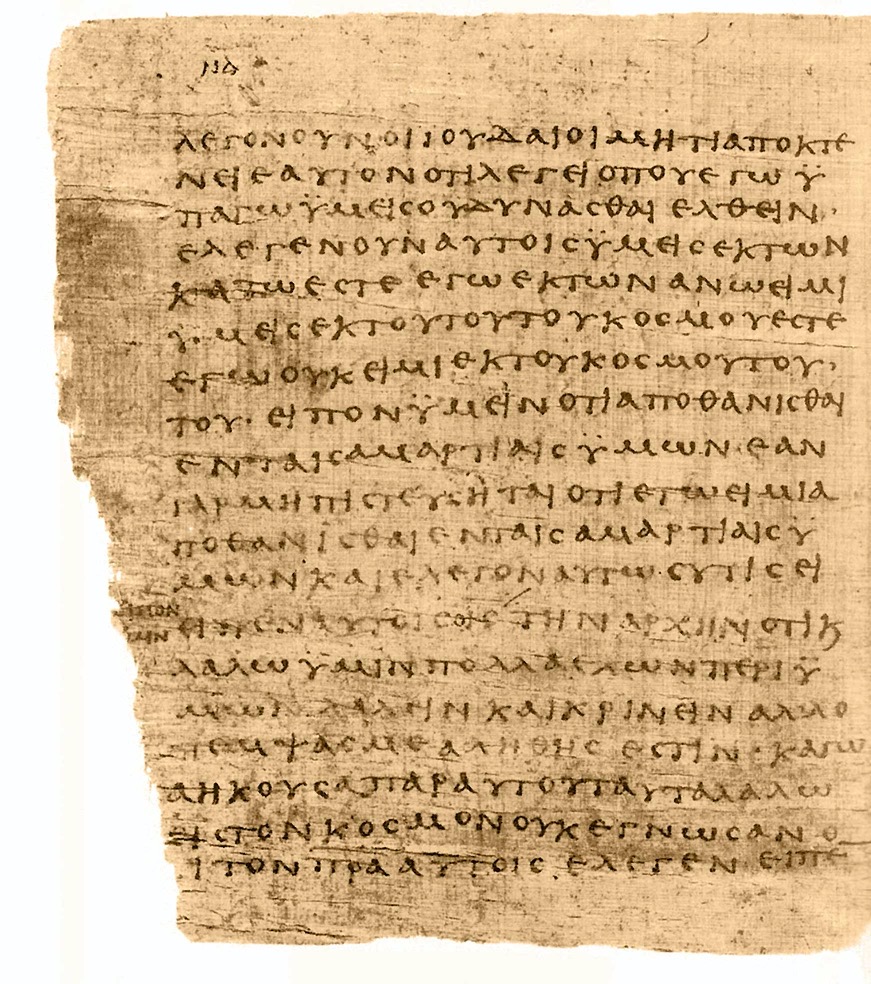 ΝΔ
ΛΕΓΟΝΟΥΝΟΙΙΟΥΔΑΙΟΙΜΗΤΙΑΠΟΚΤΕ
ΝΕΙΕΑΥΤΟΝΟΤΙΛΕΓΕΙΟΠΟΥΕΓΩΫ
ΠΑΓΩΫΜΕΙϹΟΥΔΥΝΑϹΘΑΙΕΛΘΕΙΝ·
ΕΛΕΓΕΝΟΥΝΑΥΤΟΙϹΫΜΕΙϹΕΚΤΩΝ
ΚΑΤΩΕϹΤΕΕΓΩΕΚΤΩΝΑΝΩΕΙΜΙ
ΫΜΕΙϹΕΚΤΟΥΤΟΥΤΟΥΚΟϹΜΟΥΕϹΤΕ
ΕΓΩΟΥΚΕΙΜΙΕΚΤΟΥΚΟϹΜΟΥΤΟΥ
ΤΟΥ·ΕΙΠΟΝΫΜΕΙΝΟΤΙΑΠΟΘΑΝΙϹΘΑΙ
ΕΝΤΑΙϹΑΜΑΡΤΙΑΙϹΫΜΩΝΕΑΝ
ΓΑΡΜΗΠΙϹΤΕΥϹΗΤΑΙΟΤΙΕΓΩΕΙΜΙΑ
ΠΟΘΑΝΙϹΘΑΙΕΝΤΑΙϹΑΜΑΡΤΙΑΙϹΫ
ΜΩΝΚΑΙΕΛΕΓΟΝΑΥΤΩϹΥΤΙϹΕΙ
ΕΙΠΟΝ
ΥΜΙΝ
ΕΙΠΕΝΑΥΤΟΙϹΟΙϹΤΗΝΑΡΧΗΝΟΤΙΚ
ΛΑΛΩΫΜΙΝΠΟΛΛΑΕΧΩΝΠΕΡΙΫ
ΜΩΝΛΑΛΕΙΝΚΑΙΚΡΙΝΕΙΝΑΛΛΟ
ΠΕΜΨΑϹΜΕΑΛΗΘΗϹΕϹΤΙΝ·ΚΑΓΩ
ΑΗΚΟΥϹΑΠΑΡΑΥΤΟΥΤΑΥΤΑΛΑΛΩ
ΕΙϹΤΟΝΚΟϹΜΟΝΟΥΚΕΓΝΩϹΑΝΟ
ΙΤΟΝΠΡΑΑΥΤΟΙϹΕΛΕΓΕΝΕΙΠΕ